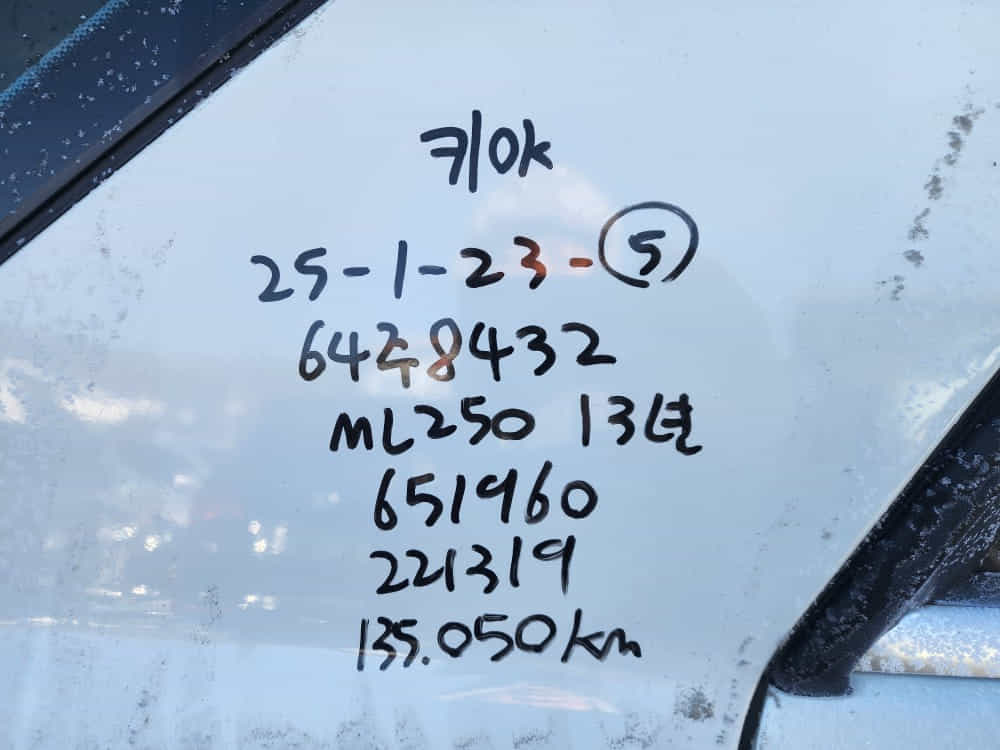 키Ok
25-1-23-⑤
64주8432
ML250 13년
651960
221319
135.050km